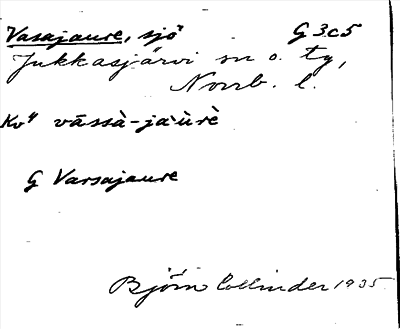 Vasajaure, sjö G 3c5
Jukkasjärvi sn o. tg,
Norrb. l.
Kv" vāssà-ja'ùrè
G Varsajaure
Björn Collinder 1935